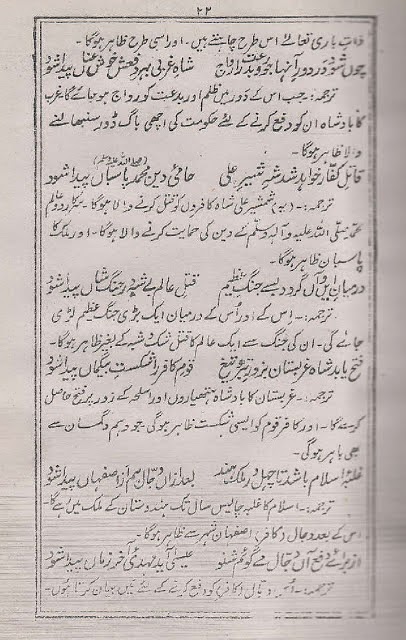 ۲۲
ذات باری تعالےٰ اس طرح چاہتے ہیں۔ اور اسی طرح ظاہر ہوگا۔
چوں شود در دور آنہا جور و بدعت را رواج شاہ غربی بہر دفعش خوش عناں پیدا شود
ترجمہ:۔ جب اس کے دور میں ظلم اور بدعت کو رواج ہو جائے گا غرب
کا بادشاہ ان کو دفع کرنے کے لئے حکومت کی اچھی باگ ڈور سنبھالنے
والا ظاہر ہوگا۔
قاتل کفار خواہد شد شہ شیر علی حامئی دین محمد (صلی اللہ علیہ وسلم) پاسباں پیدا شود
ترجمہ:۔ (یہ) شمشیر علی شاہ کافروں کو قتل کرنے والا ہوگا۔ سرکار دو عالم
محمد صلی اللہ علیہ وآلہ وسلم کے دین کی حمایت کرنے والا ہوگا۔ اور ملک کا
پاسبان ظاہر ہوگا۔
درمیان این و آں گردد بسے جنگ عظیم قتل عالم بے شبہ در جنگ شاں پیدا شود
ترجمہ:۔ اِس کے اور اُس کے درمیان ایک بڑی جنگ عظیم لڑی
جائے گی۔ ان کی جنگ سے ایک عالم کا قتل شک و شبہ کے بغیر ظاہر ہوگا۔
فتح یابد شاہ غربستان بزور تیر و تیغ قوم کافر را شکست بیگماں پیدا شود
ترجمہ:۔ غربستان کا بادشاہ ہتھیاروں اور اسلحہ کے زور پر فتح حاصل
کرے گا۔ اور کافر قوم کو ایسی شکست ظاہر ہوگی۔ جو وہم و گمان سے
بھی باہر ہوگی۔
غلبۂ اسلام باشد تا چہل در ملک ہند بعد ازاں دجال ہم از اصفہاں پیدا شود
ترجمہ:۔ اسلام کا غلبہ چالیس سال تک ہندوستان کے ملک میں ہے گا
اس کے بعد دجال (کافر) اصفہان شہر سے ظاہر ہوگا۔
از برائے دفع آں دجال مے گوئم شنو عیسیٰ آید مہدئ آخر زماں پیدا شود
ترجمہ:۔ اُس دجال (کافر) کو دفع کرنے کے لئے میں بیان کرتا ہوں۔